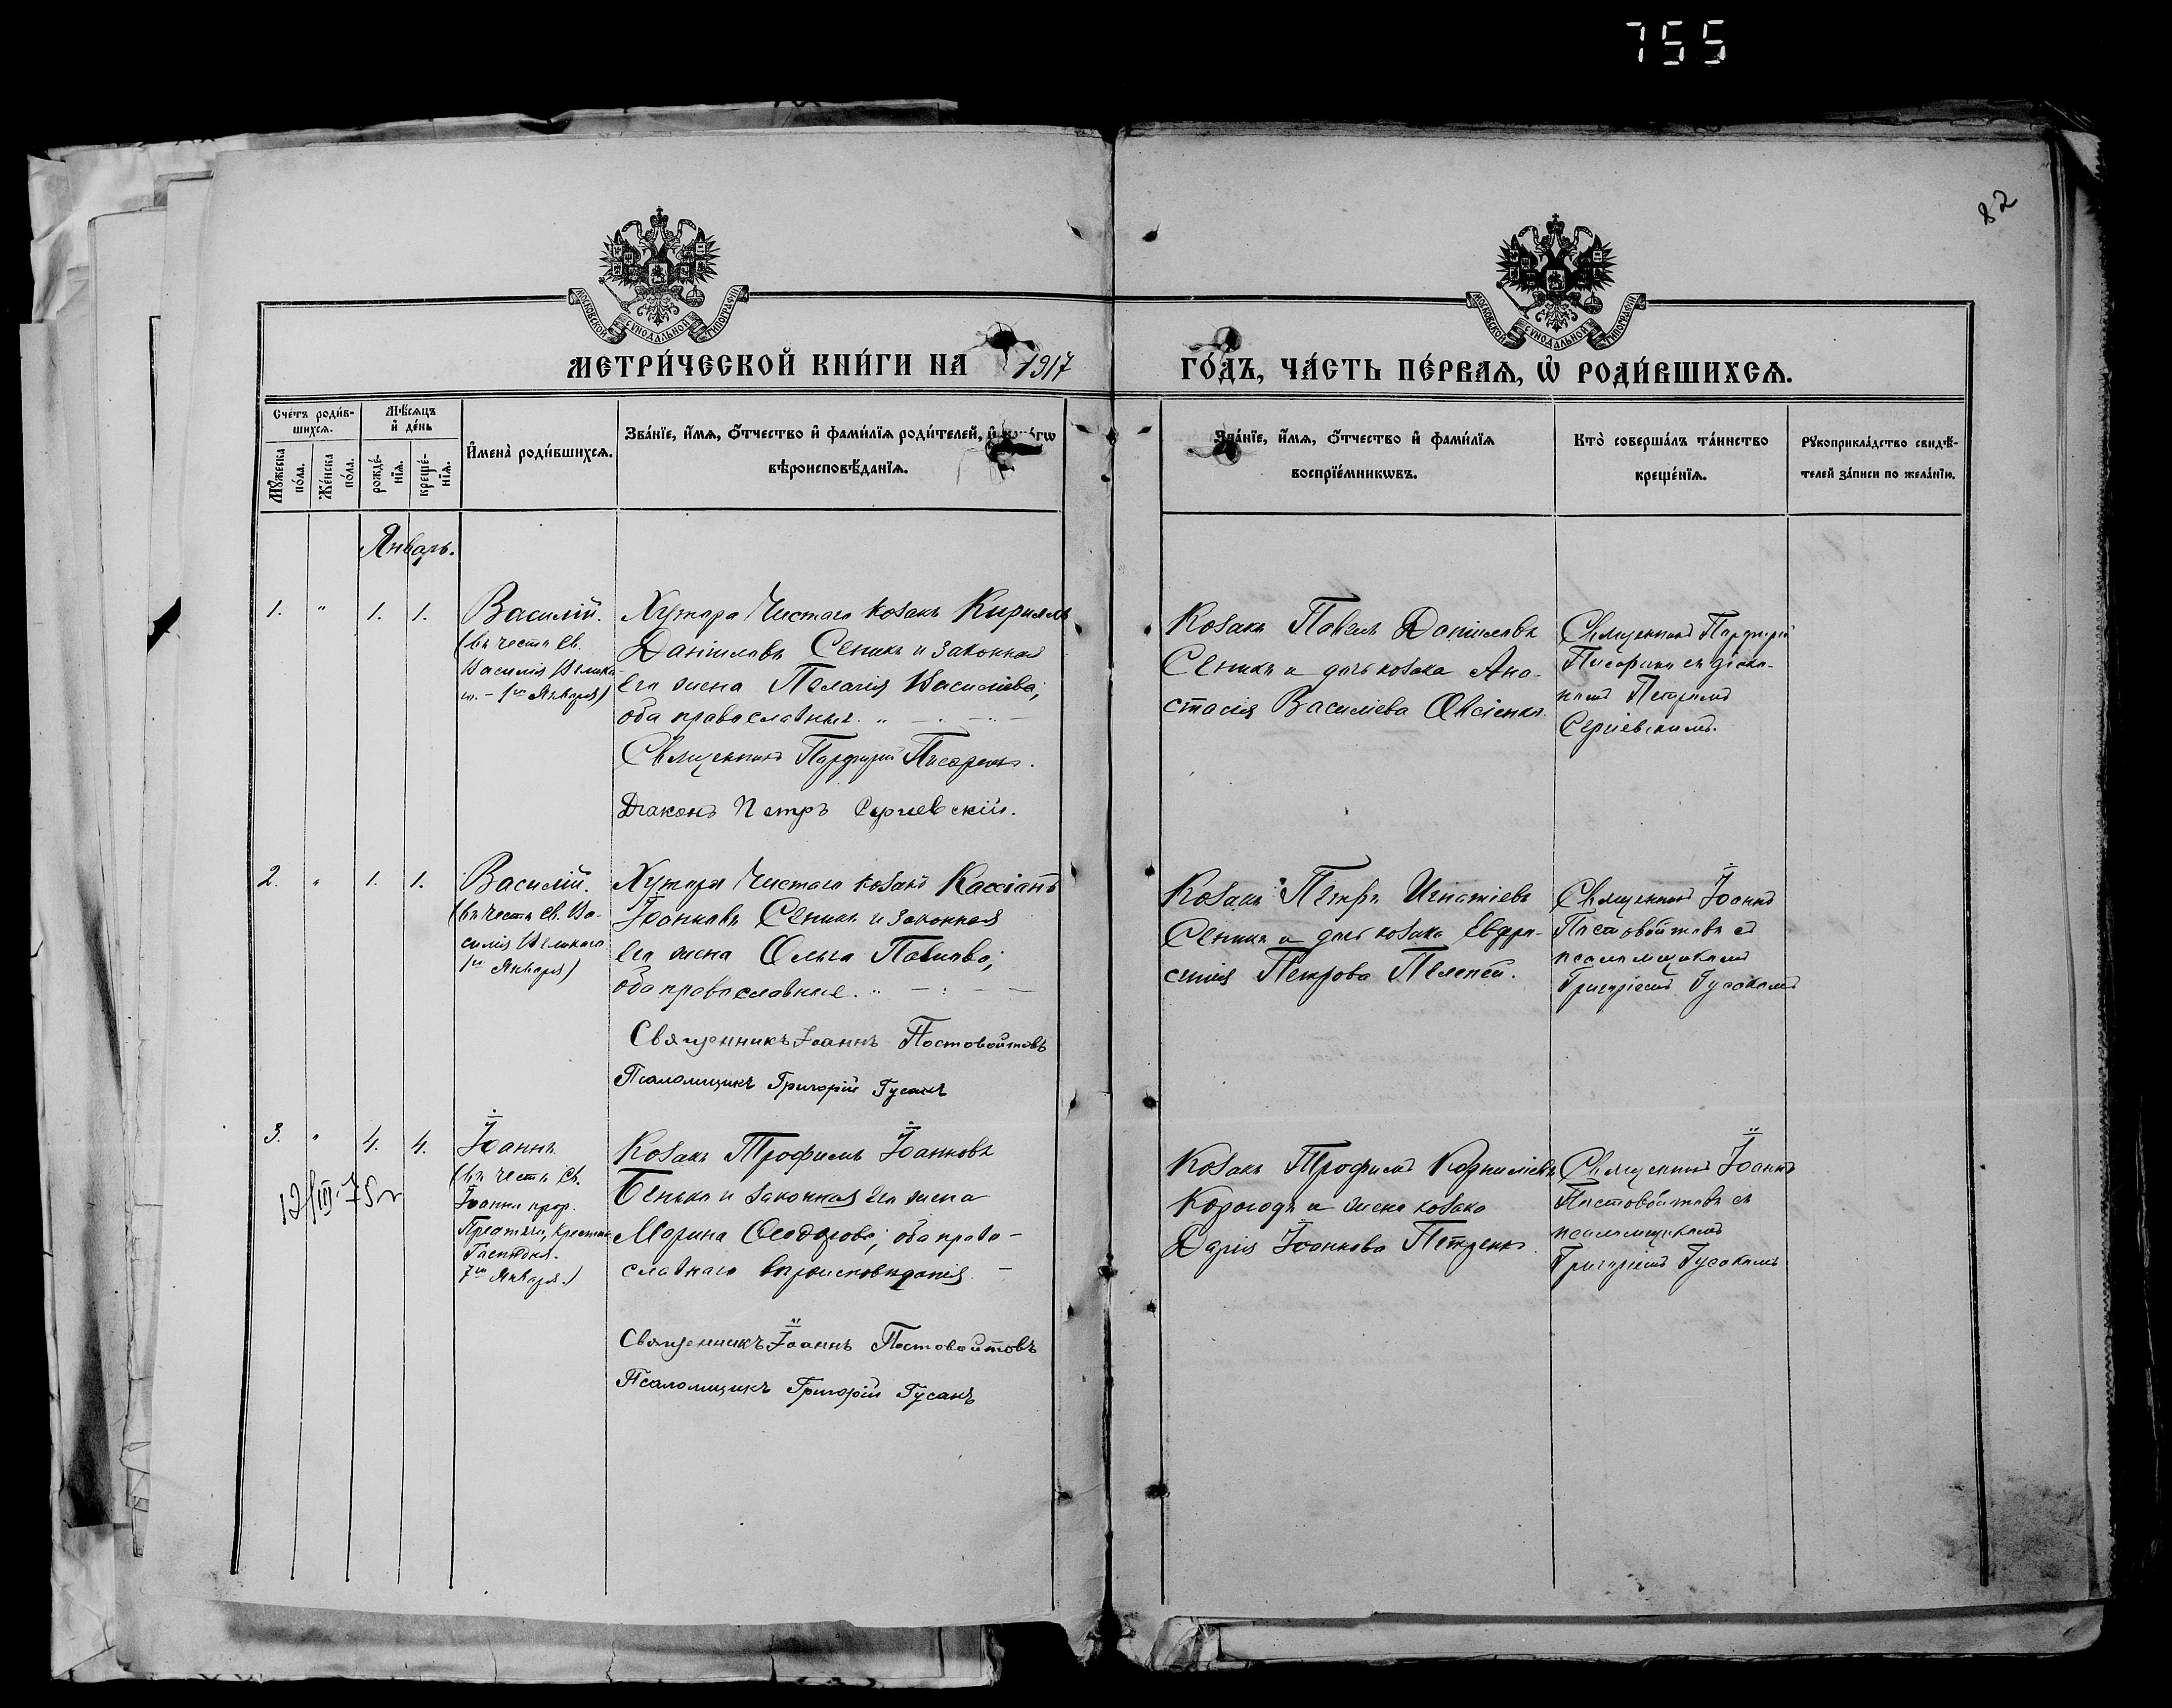 755
82
МОСКОВСКОЙ СѴНОДАЛЬНОЙ ТИПОГРАФІИ
МОСКОВСКОЙ СѴНОДАЛЬНОЙ ТИПОГРАФІИ
МЕТРИ́ЧЕСКОЙ КНИ́ГИ НА 1917 ГО́ДЪ, ЧА́СТЬ ПЕ́РВАѦ, Ѡ҆ РОДИ́ВШИХСѦ.
Сче́тъ роди́в-
шихсѧ.
Мꙋ́жеска по́ла.
Же́нска по́ла.
Мѣ́сѧцъ и҆ де́нь
рожде́-
нїѧ.
креще́-
нїѧ.
И҆мена̀ роди́вшихсѧ.
Зва́нїе, и҆́мѧ, ѻ҆́тчество и҆ фами́лїѧ роди́телей, и҆ како́гѡ
вѣроисповѣ́данїѧ.
Зва́нїе, и҆́мѧ, ѻ҆́тчество и҆ фами́лїѧ
воспрїе́мникѡвъ.
Кто̀ соверша́лъ та́инство
креще́нїѧ.
Рꙋкоприкла́дство свидѣ́-
телей за́писи по жела́нїю.
Январь.
1. " 1. 1.
Василій.
(въ честь св.
Василія Велика
го. – 1го Января)
Хутора Чистаго козакъ Кириллъ
Даніиловъ Сеникъ и законная
его жена Пелагія Василіева;
оба православные. "
Священникъ Порфирій Писаренко.
Діаконъ Петръ Сергіевскій.
Козакъ Павелъ Даніиловъ
Сеникъ и дочь козака Ана-
стасія Василіева Овсіенко.
Священникъ Порфирій
Писаренко съ діако-
номъ Петромъ
Сергіевскимъ.
2. " 1. 1.
Василій.
(въ честь св. Ва-
силія Великаго
1го Января)
Хутора Чистаго козакъ Кассіанъ
Іоанновъ Сеникъ и законная
его жена Ольга Павлова;
оба православные. "
Священникъ Іоаннъ Постовойтовъ
Псаломщикъ Григорій Гусакъ
Козакъ Петръ Игнатіевъ
Сеникъ и дочь козака Евдо-
сенія Петрова Пелепей.
Священникъ Іоаннъ
Постовойтовъ съ
псаломщикомъ
Григоріемъ Гусакомъ
3. " 4. 4.
12/III-75 г
Іоаннъ.
(въ честь св.
Іоанна прор.
Предтечи, Крестит.
Господня.
7го Января.)
Козакъ Трофимъ Іоанновъ
Бенько и законная его жена
Марина Ѳеодорова; оба право-
славнаго вѣроисповѣданія. –
Священникъ Іоаннъ Постовойтовъ
Псаломщикъ Григорій Гусакъ
Козакъ Трофимъ Корниліевъ
Корогодъ и жена козака
Дарія Іоаннова Петренко.
Священникъ Іоаннъ
Постовойтовъ съ
псаломщикомъ
Григоріемъ Гусакомъ